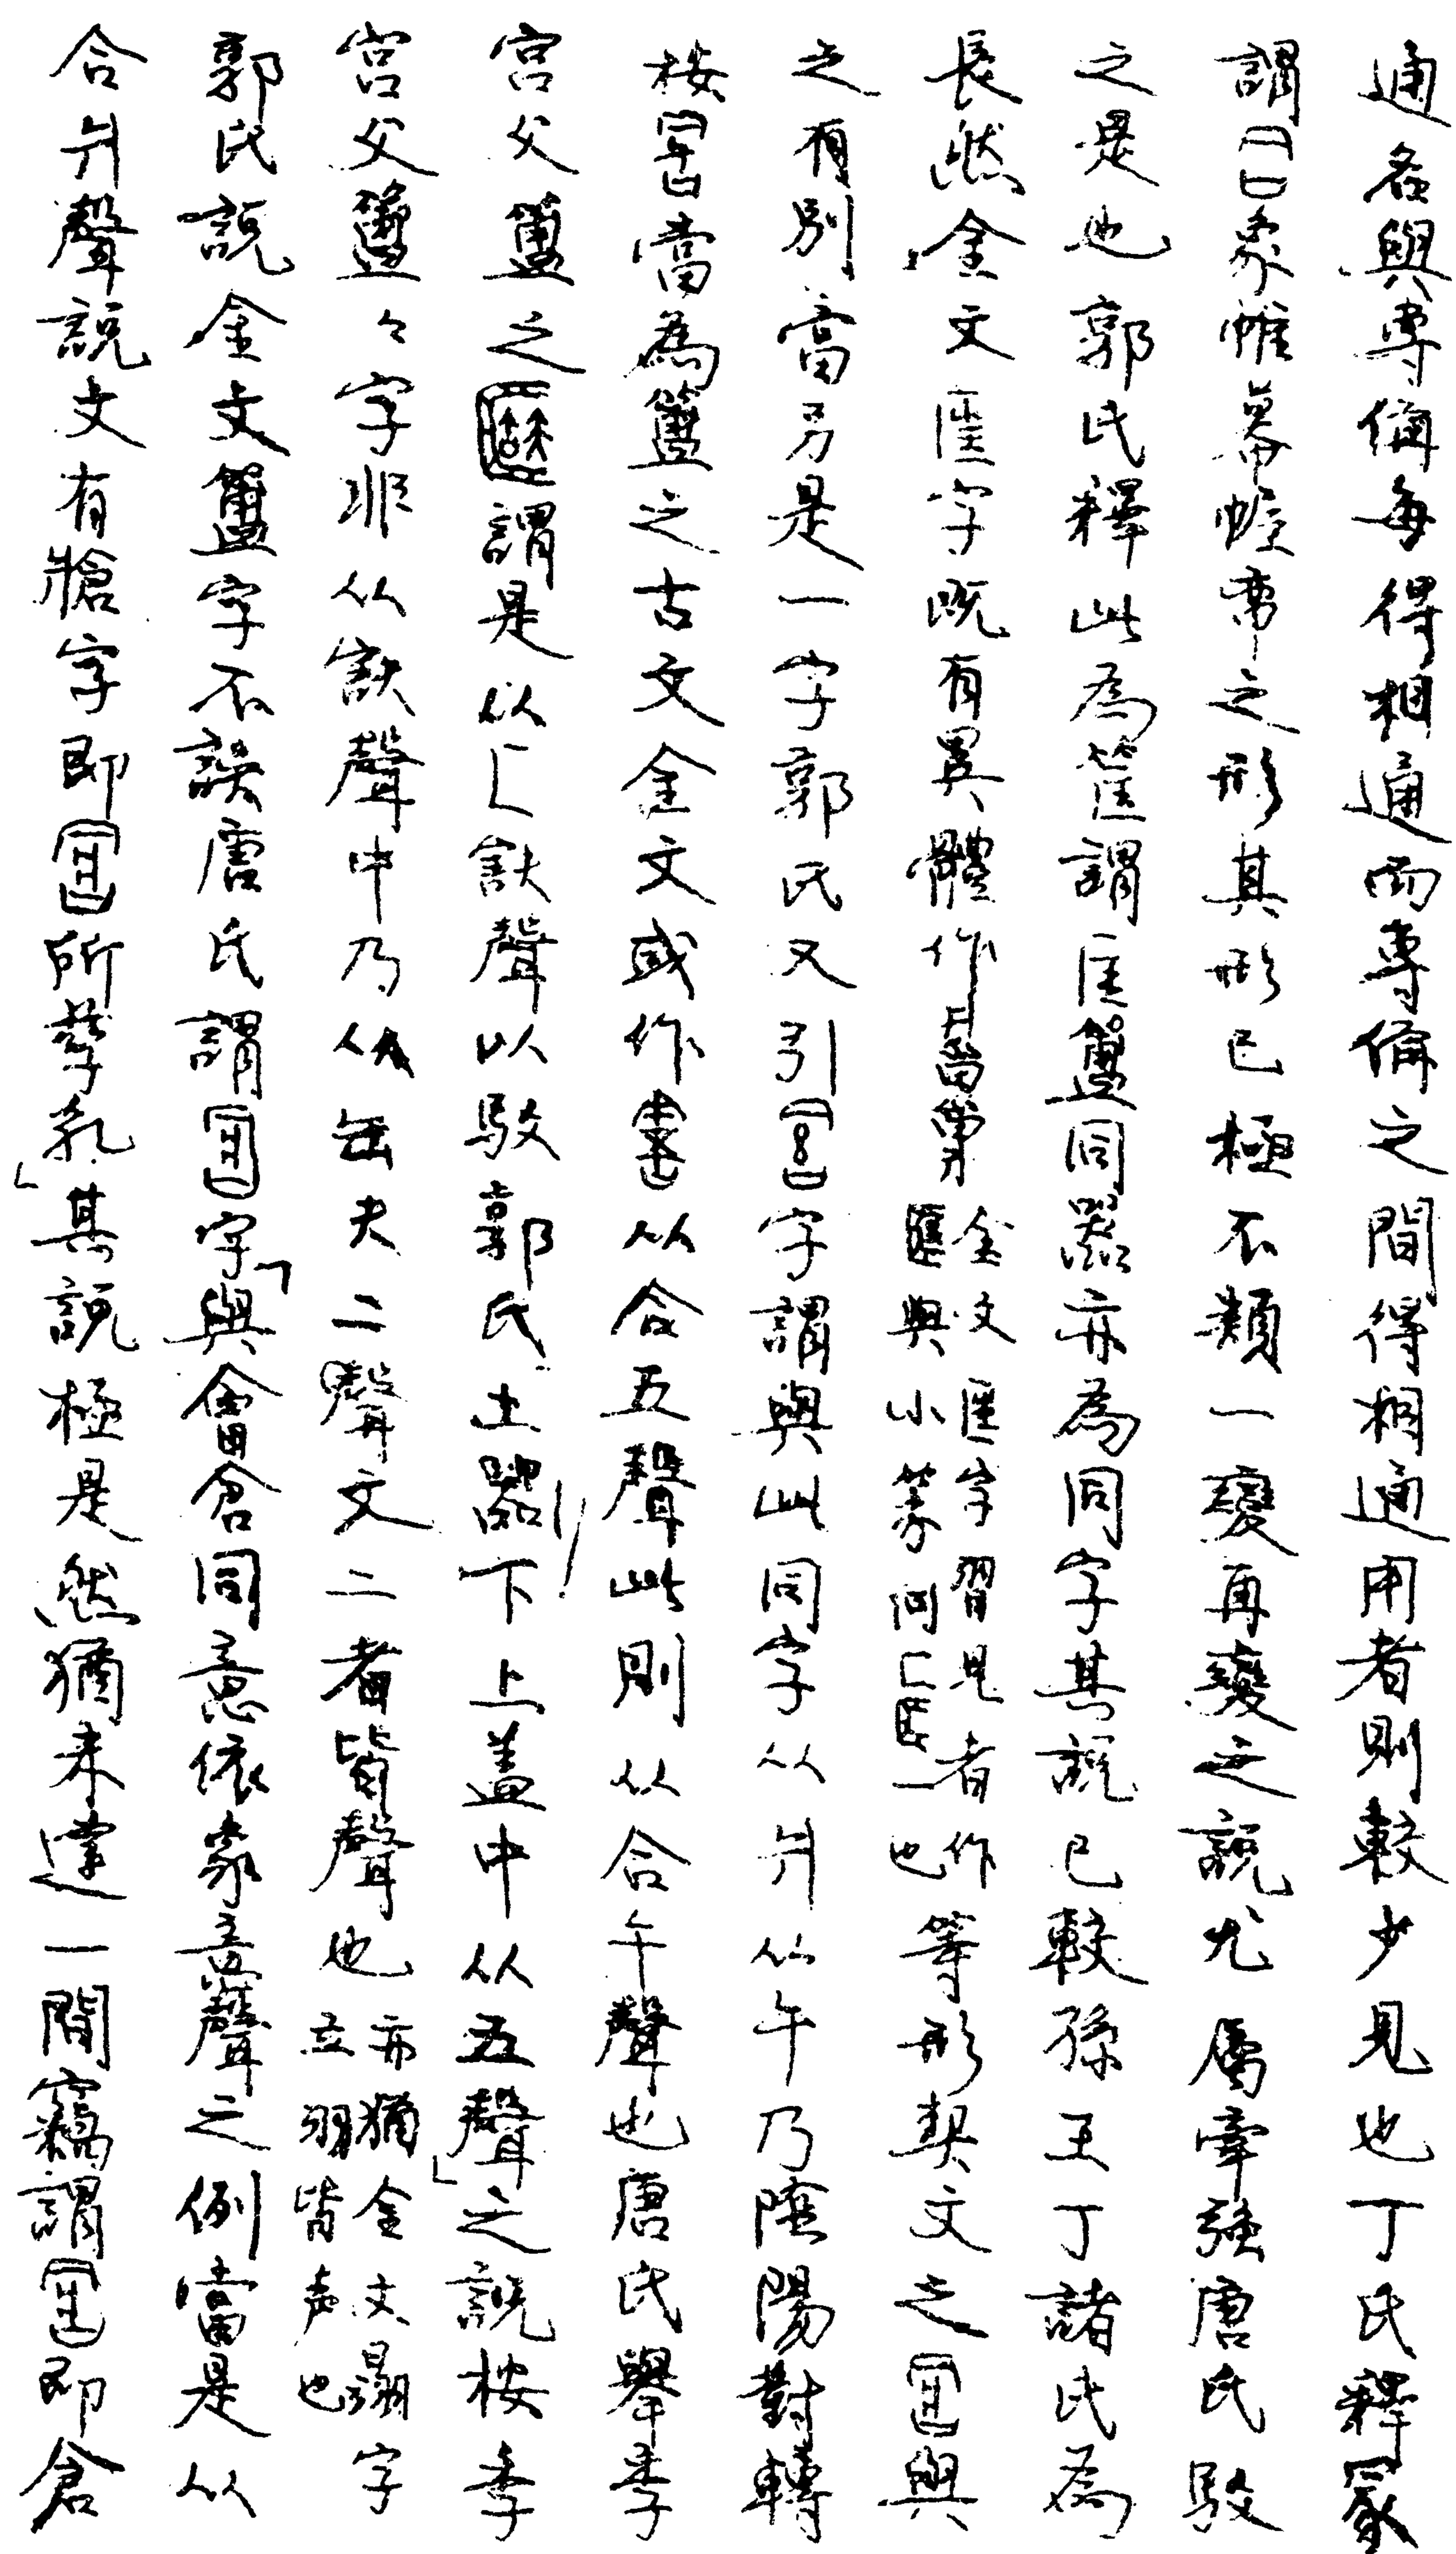 通名與專偁每得相通而專偁之間得相通用者則較少見也丁氏釋冡
謂象帷幕幄帟之形其形已極不類一變再變之說尤屬牽強唐氏駁
之是也郭氏釋此為筐謂匡簠同器亦為同字其說已較孫王丁諸氏為
長然金文匡字既有異體作金文匡字習見者作與小篆同一也等形契文之與
之有別當另是一字郭氏又引字謂與此同字从爿从午乃陰陽對轉
按當為簠之古文金文或作从合五聲此則从合午聲也唐氏舉季
宮父簠之謂是从匚㝬聲以駁郭氏土器下上蓋中从五聲之說按季
宮父簠々字非从㝬聲中乃从缶夫二聲文二者皆聲也亦猶金文字立羽皆声也
郭氏說金文簠字不誤唐氏謂字與會倉同意依象意聲之例當是从
合爿聲說文有牄字即所孳乳其說極是然猶未達一間竊謂即倉